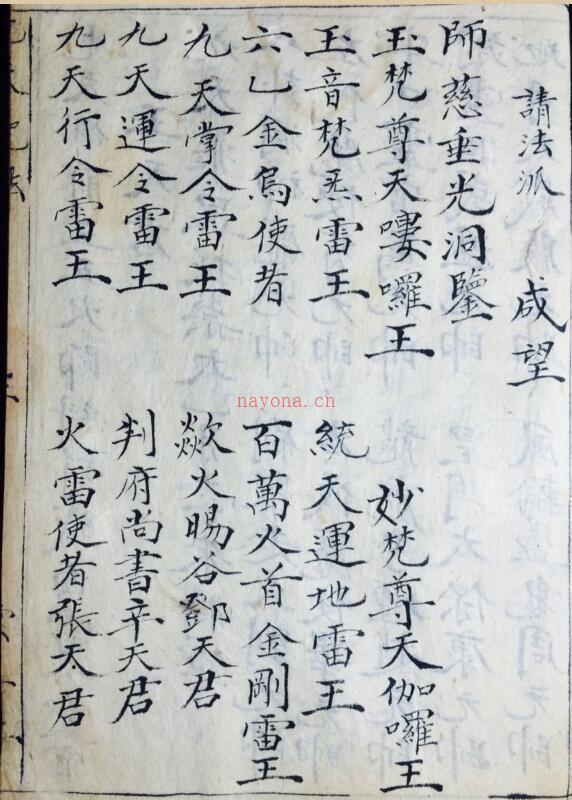 請法派　咸望
師慈垂光洞鑒
玉梵尊天嘍囉王　妙梵尊天伽囉王
玉音梵炁雷王　統天運地雷王
六乙金烏使者　百萬火首金剛雷王
九天掌令雷王　歘火暘谷鄧天君
九天運令雷王　判府尚書辛天君
九天行令雷王　火雷使者張天君
nayona.cn